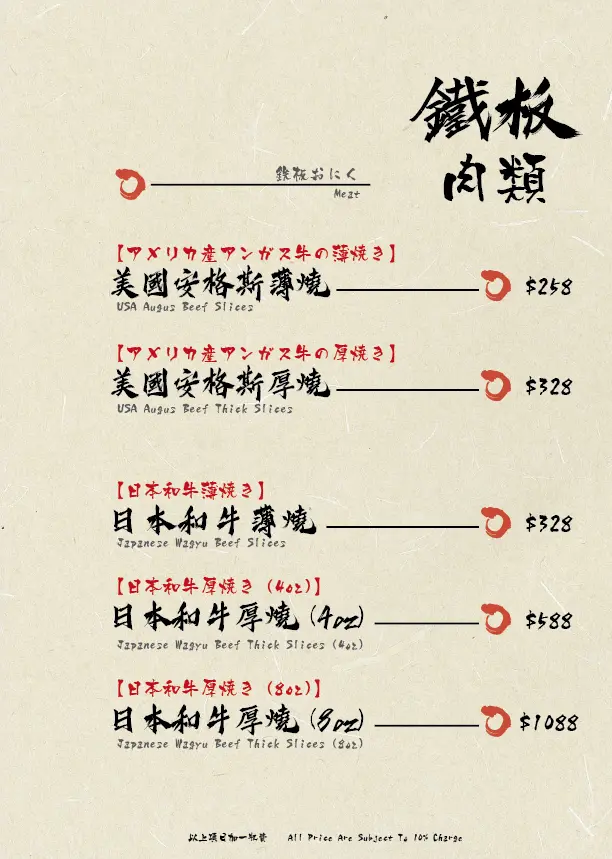 鐵板
肉類
鉄板おにく
Meat
【アメリカ産アンガス牛の薄焼き】
美國安格斯薄燒
$258
USA Augus Beef Slices
【アメリカ産アンガス牛の厚焼き】
美國安格斯厚燒
$328
USA Augus Beef Thick Slices
【日本和牛薄焼き】
日本和牛薄燒
$328
Japanese Wagyu Beef Slices
【日本和牛厚焼き (4oz)】
日本和牛厚燒 (4oz)
$588
Japanese Wagyu Beef Thick Slices (4oz)
【日本和牛厚焼き (8oz)】
日本和牛厚燒 (8oz)
$1088
Japanese Wagyu Beef Thick Slices (8oz)
以上項目加一收費 All Price Are Subject To 10% Charge